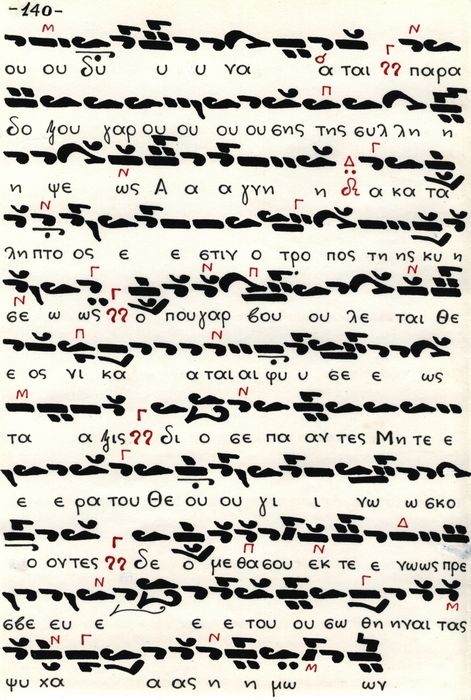 -140-
ου ου δυ υ υ να α ται παρα
δο ξου γαρ ου ου ου ου σης της συλ λη η
η ψε ως Α α α γνη η α κα τα
λη πτο ος ε ε στιν ο τρο πος τη ης κυ η
σε ω ως ο που γαρ βου ου λε ται Θε
ε ος νι κα α ται αι φυ υ σε ε ως
τα α ξις δι ο σε πα αν τες Μη τε ε
ε ε ρα του Θε ου ου γι ι νω ω σκο
ο ον τες δε ο με θα σου εκ τε ε νω ως πρε
σβε ευ ε ε ε του ου σω θη ηναι τας
ψυ χα α ας η η μω ων